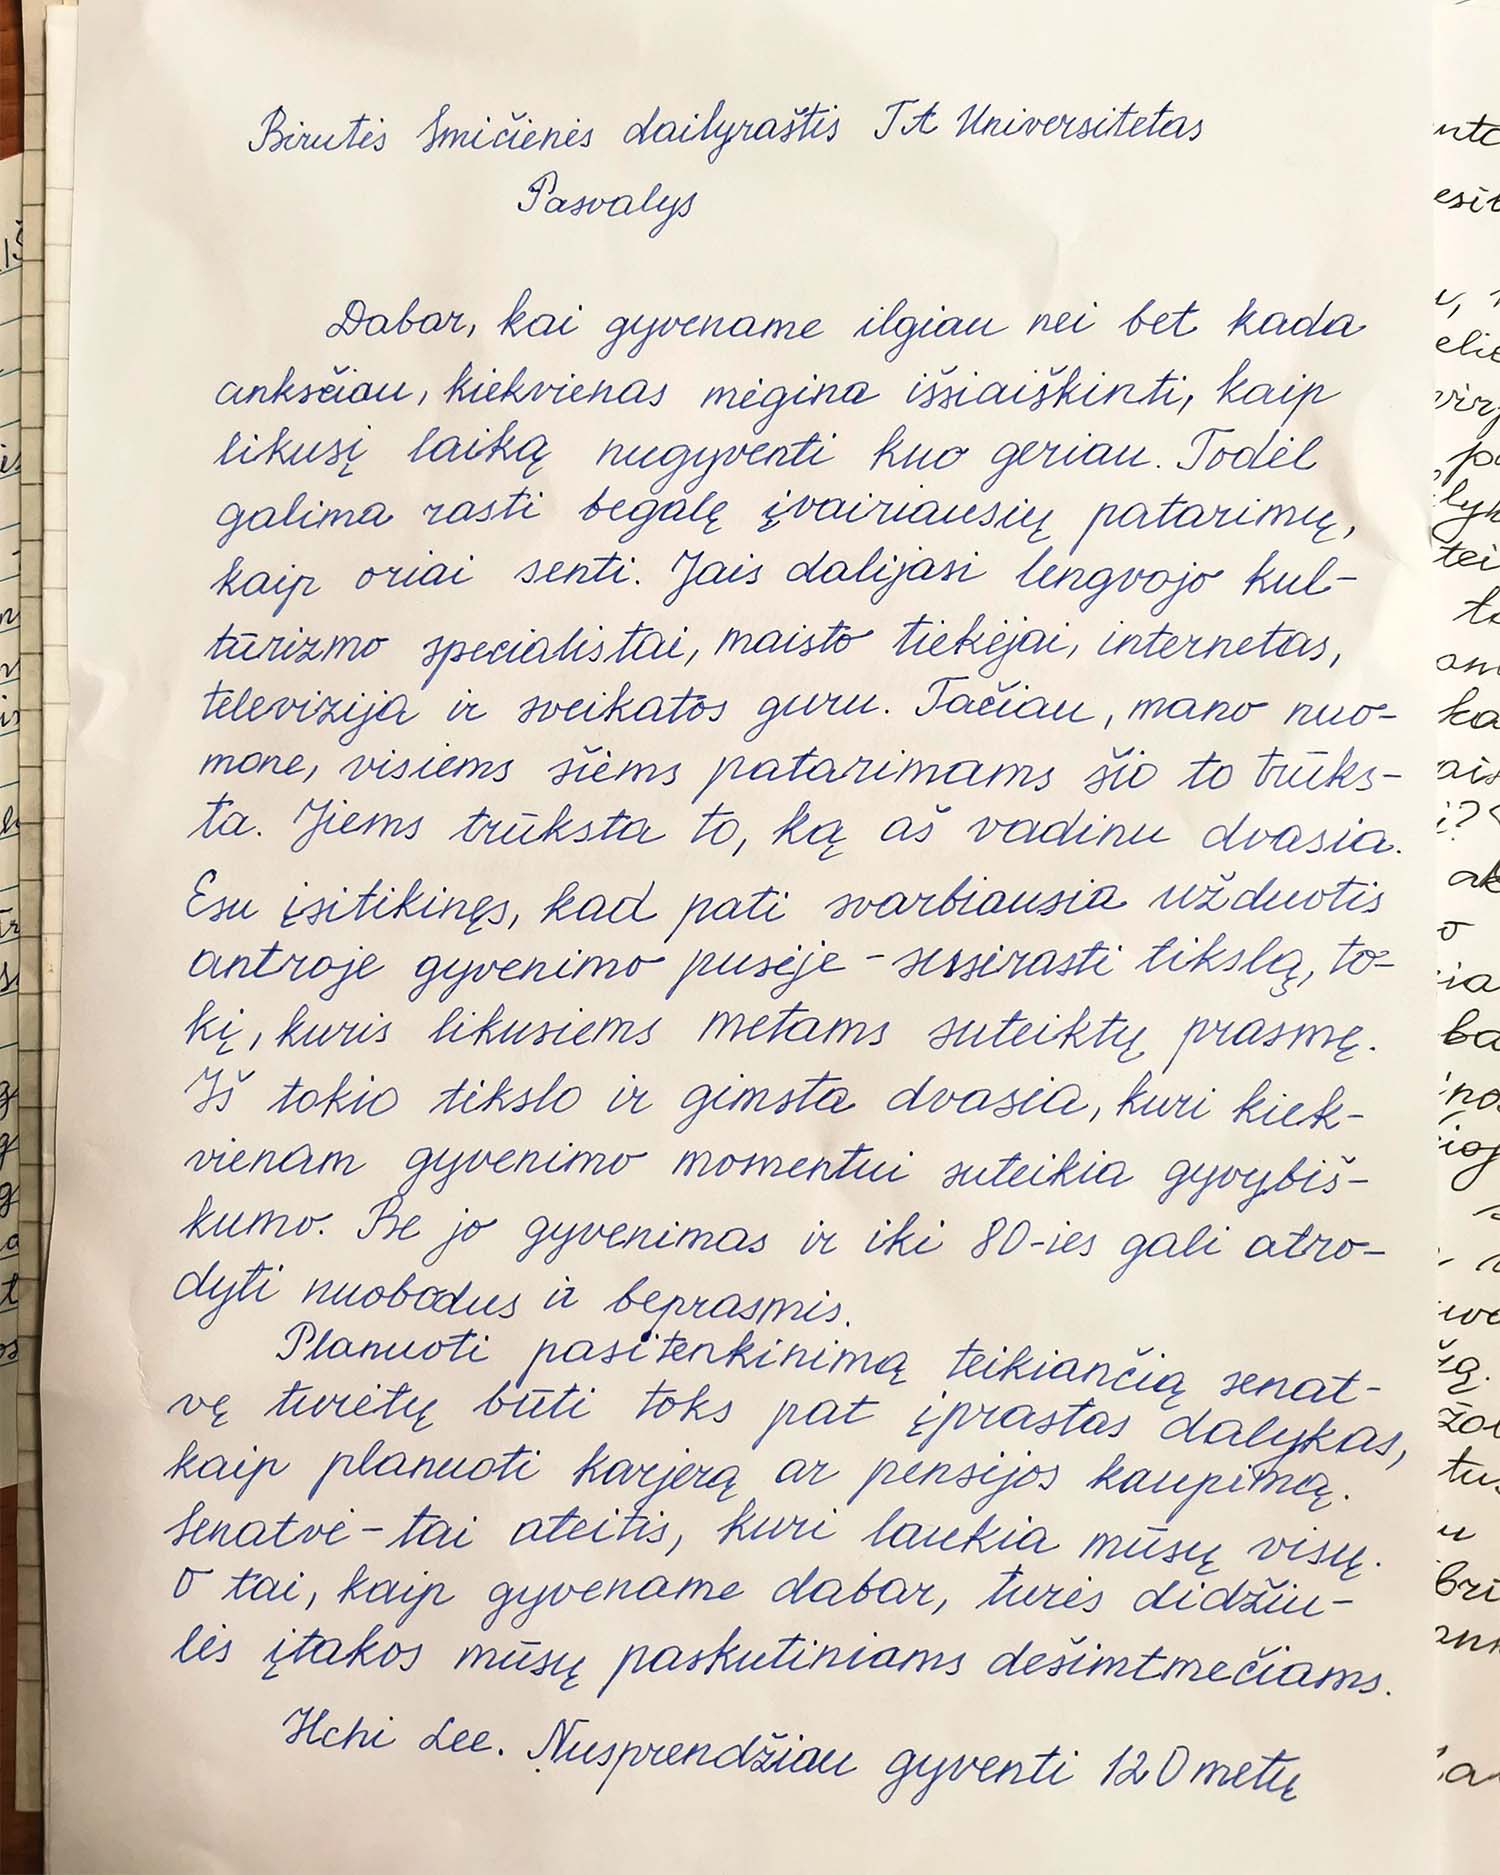 Birutės Smičienės dailyraštis TA Universitetas
Pasvalys
Dabar, kai gyvename ilgiau nei bet kada
anksčiau, kiekvienas mėgina išsiaiškinti, kaip
likusį laiką nugyventi kuo geriau. Todėl
galima rasti begalę įvairiausių patarimų,
kaip oriai senti. Jais dalijasi lengvojo kul-
tūrizmo specialistai, maisto tiekėjai, internetas,
televizija ir sveikatos guru. Tačiau, mano nuo-
mone, visiems šiems patarimams šio to trūks-
ta. Jiems trūksta to, ką aš vadinu dvasia.
Esu įsitikinęs, kad pati svarbiausia užduotis
antroje gyvenimo pusėje - susirasti tikslą, to-
kį, kuris likusiems metams suteiktų prasmę.
Iš tokio tikslo ir gimsta dvasia, kuri kiek-
vienam gyvenimo momentui suteikia gyvybiš-
kumo. Be jo gyvenimas ir iki 80-ies gali atro-
dyti nuobodus ir beprasmis.
Planuoti pasitenkinimą teikiančią senat-
vę turėtų būti toks pat įprastas dalykas,
kaip planuoti karjerą ar pensijos kaupimą.
Senatvė - tai ateitis, kuri laukia mūsų visų.
O tai, kaip gyvename dabar, turės didžiu-
lės įtakos mūsų paskutiniams dešimtmečiams.
Ilchi Lee. Nusprendžiau gyventi 120 metų